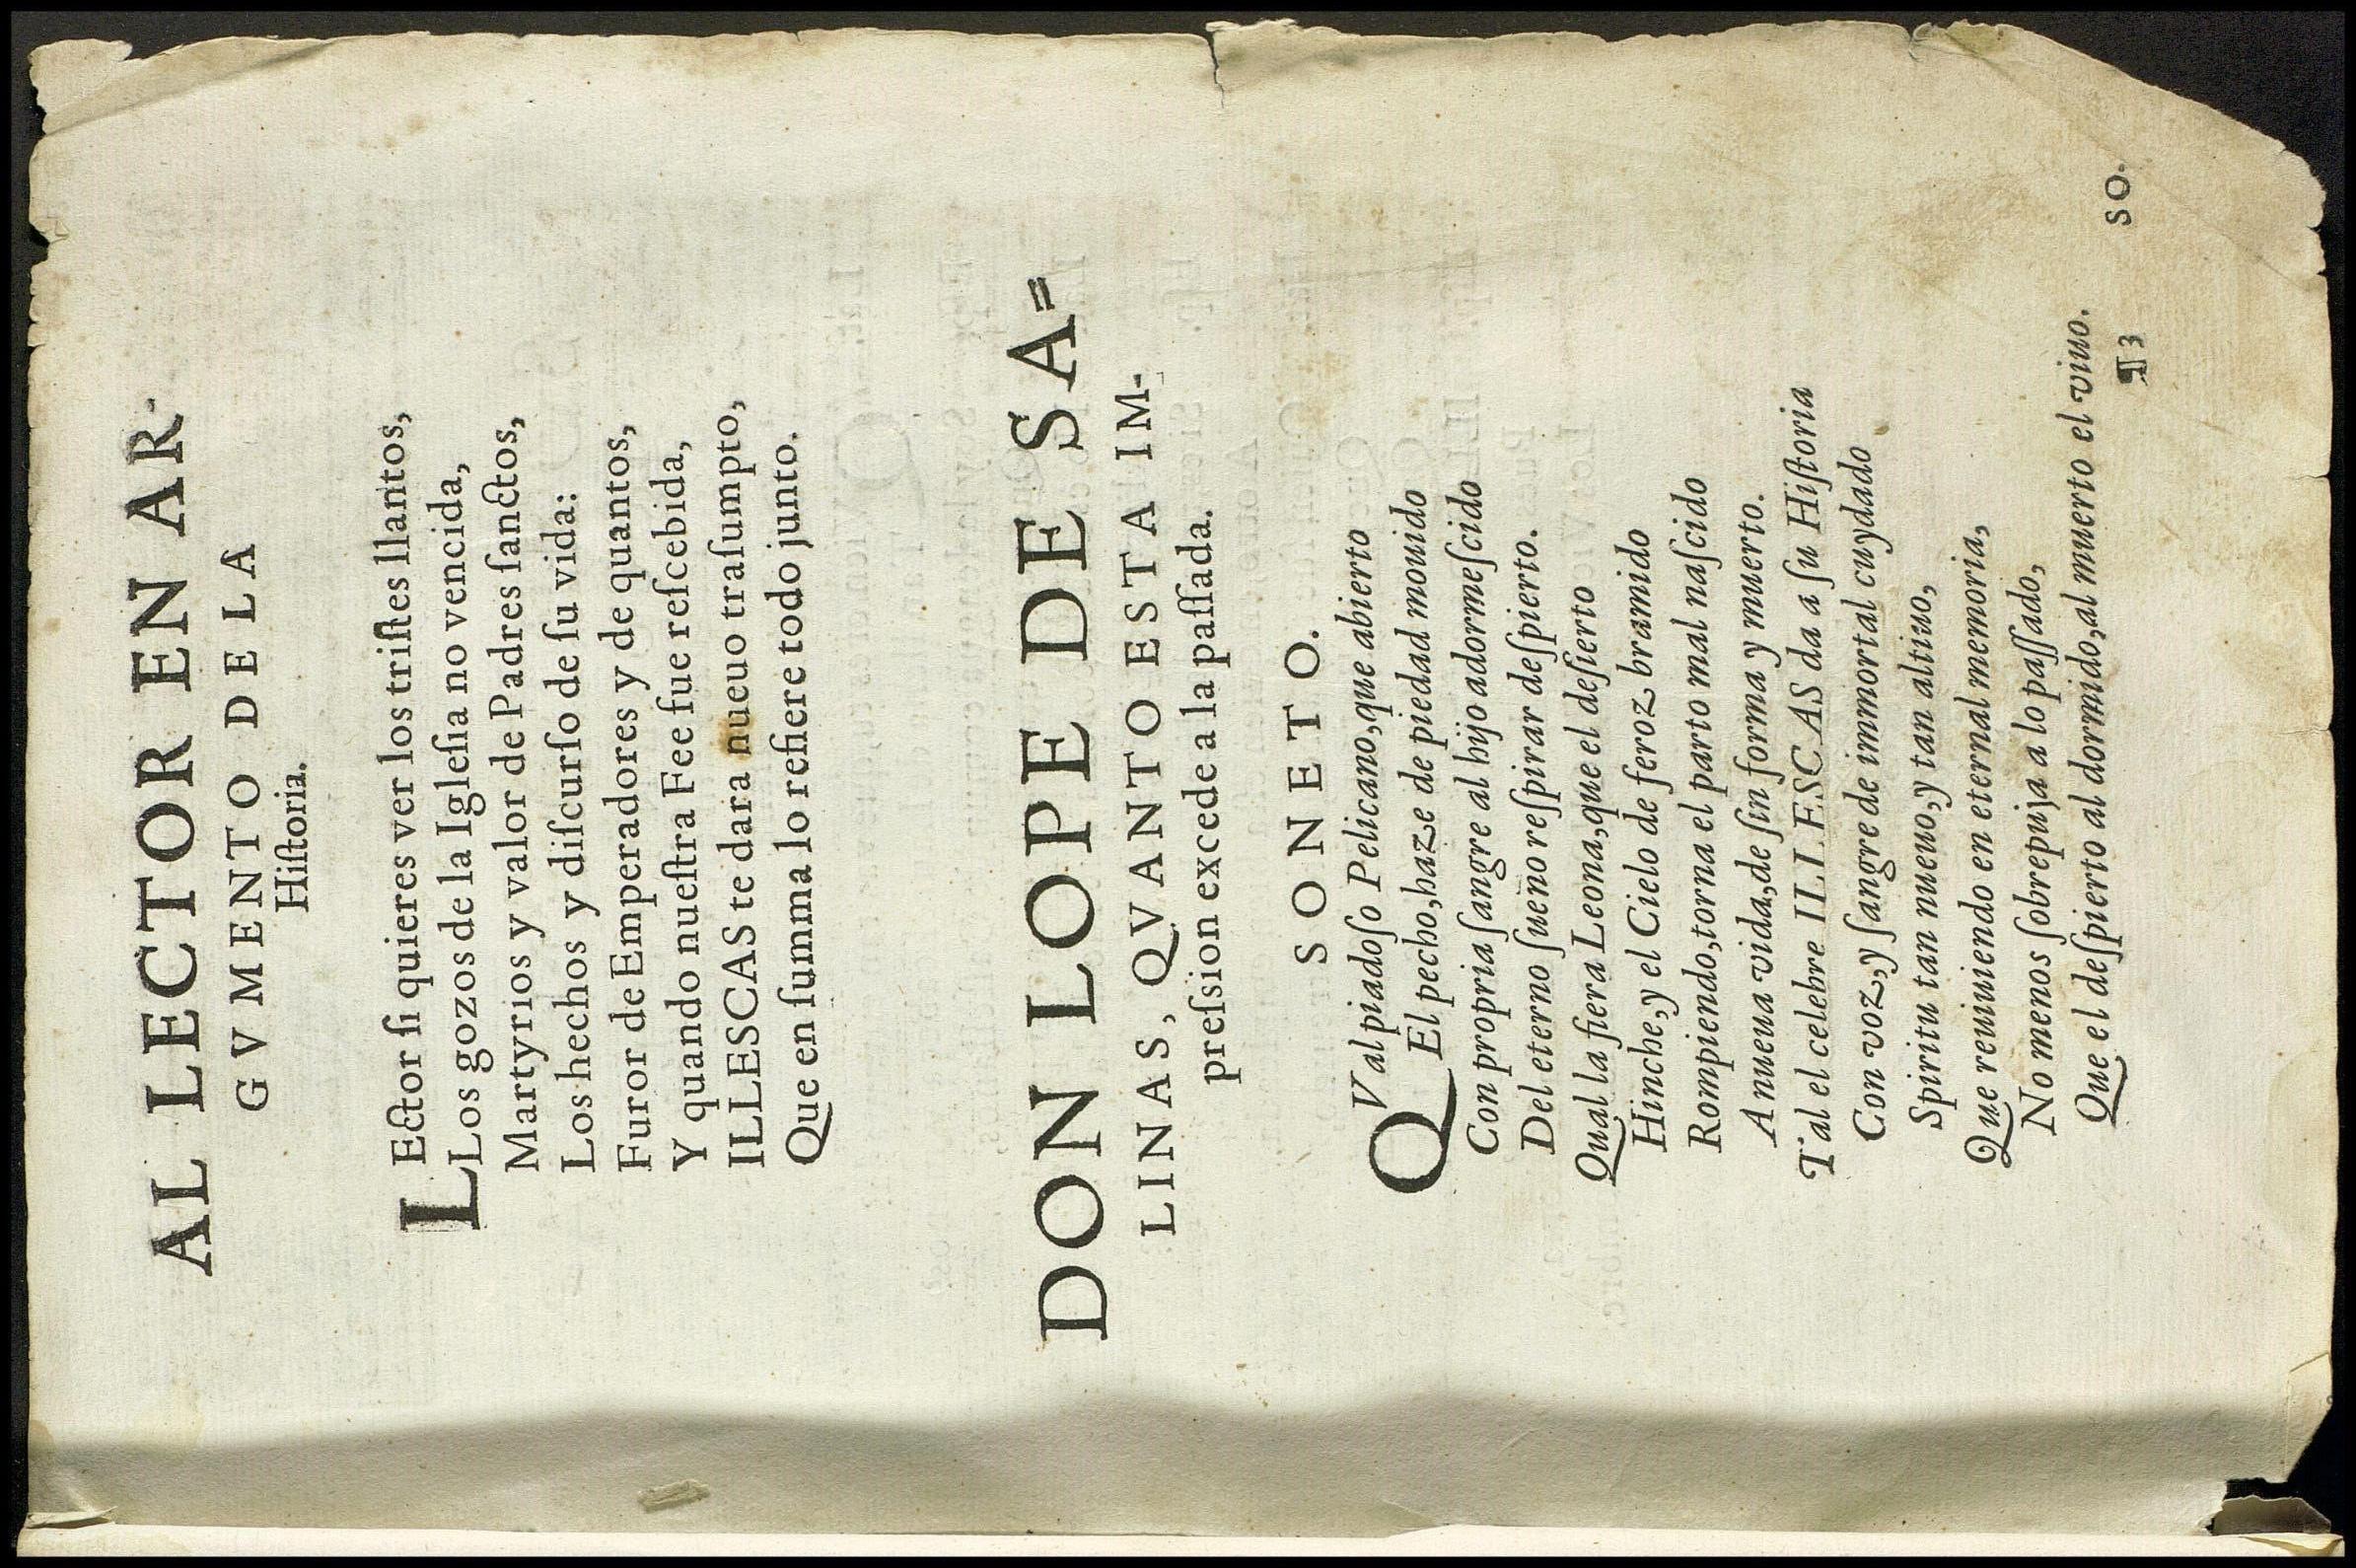 AL LECTOR EN AR-
GVMENTO DE LA
Hiſtoria.
LEctor ſi quieres ver los triſtes llantos,
Los gozos de la Igleſia no vencida,
Martyrios y valor de Padres ſanctos,
Los hechos y diſcurſo de ſu vida:
Furor de Emperadores y de quantos,
Y quando nueſtra Fee fue reſcebida,
ILLESCAS te dara nueuo traſumpto,
Que en ſumma lo refiere todo junto.
DON LOPE DE SA=
LINAS, QVANTO ESTA IM-
preſsion excede a la paſſada.
SONETO.
QVal piadoſo Pelicano,que abierto
El pecho,haze de piedad mouido
Con propria ſangre al hijo adormeſcido
Del eterno ſueño reſpirar deſpierto.
Qual la fiera Leona,que el deſierto
Hinche,y el Cielo de feroz bramido
Rompiendo,torna el parto mal naſcido
A nueua vida,de ſin forma y muerto.
Tal el celebre ILLESCAS da a ſu Hiſtoria
Con voz,y ſangre de immortal cuydado
Spiritu tan nueuo,y tan altiuo,
Que reuiuiendo en eternal memoria,
No menos ſobrepuja a lo paſſado,
Que el deſpierto al dormido,al muerto el viuo.
¶3 SO-